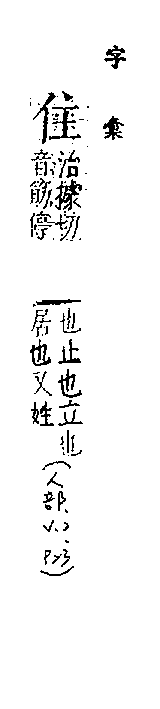 字彙
住
治據切
音筯停
也止也立也(人部,
居也又姓